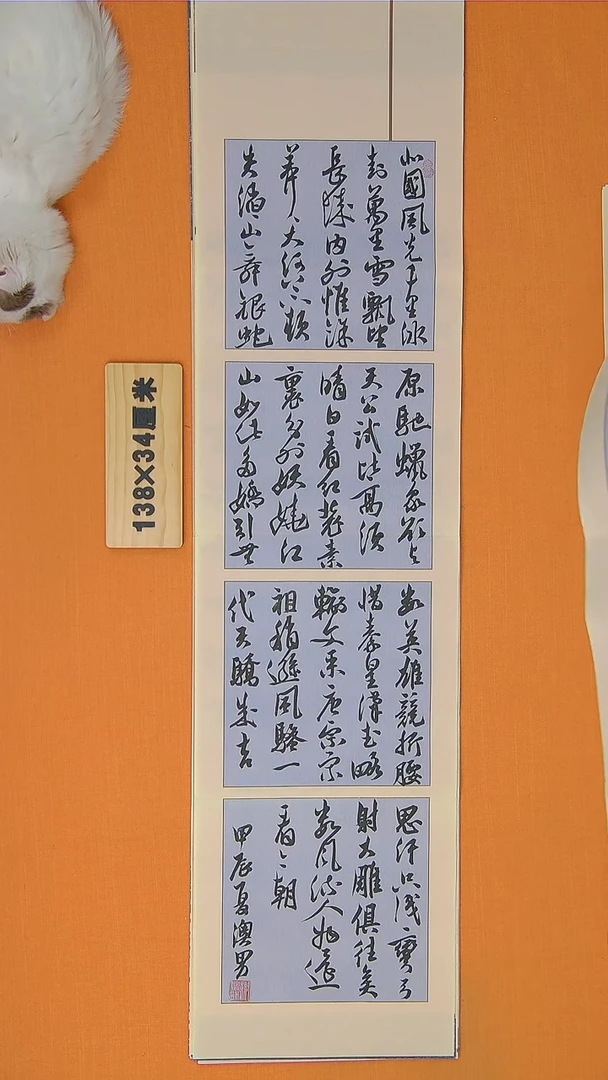 北國風光千里冰
封萬里雪飄望
長城内外惟餘
莽々大河上下頓
失滔々山舞銀蛇
原馳蠟象欲与
天公試比高須
晴日看紅裝素
裹分外妖嬈江
山如此多嬌引無
數英雄競折腰
惜秦皇漢武略
輸文采唐宗宋
祖稍遜風騷一
代天驕成吉
思汗只識彎弓
射大雕俱往矣
數風流人物還
看今朝
甲辰夏澳男
138×34厘米